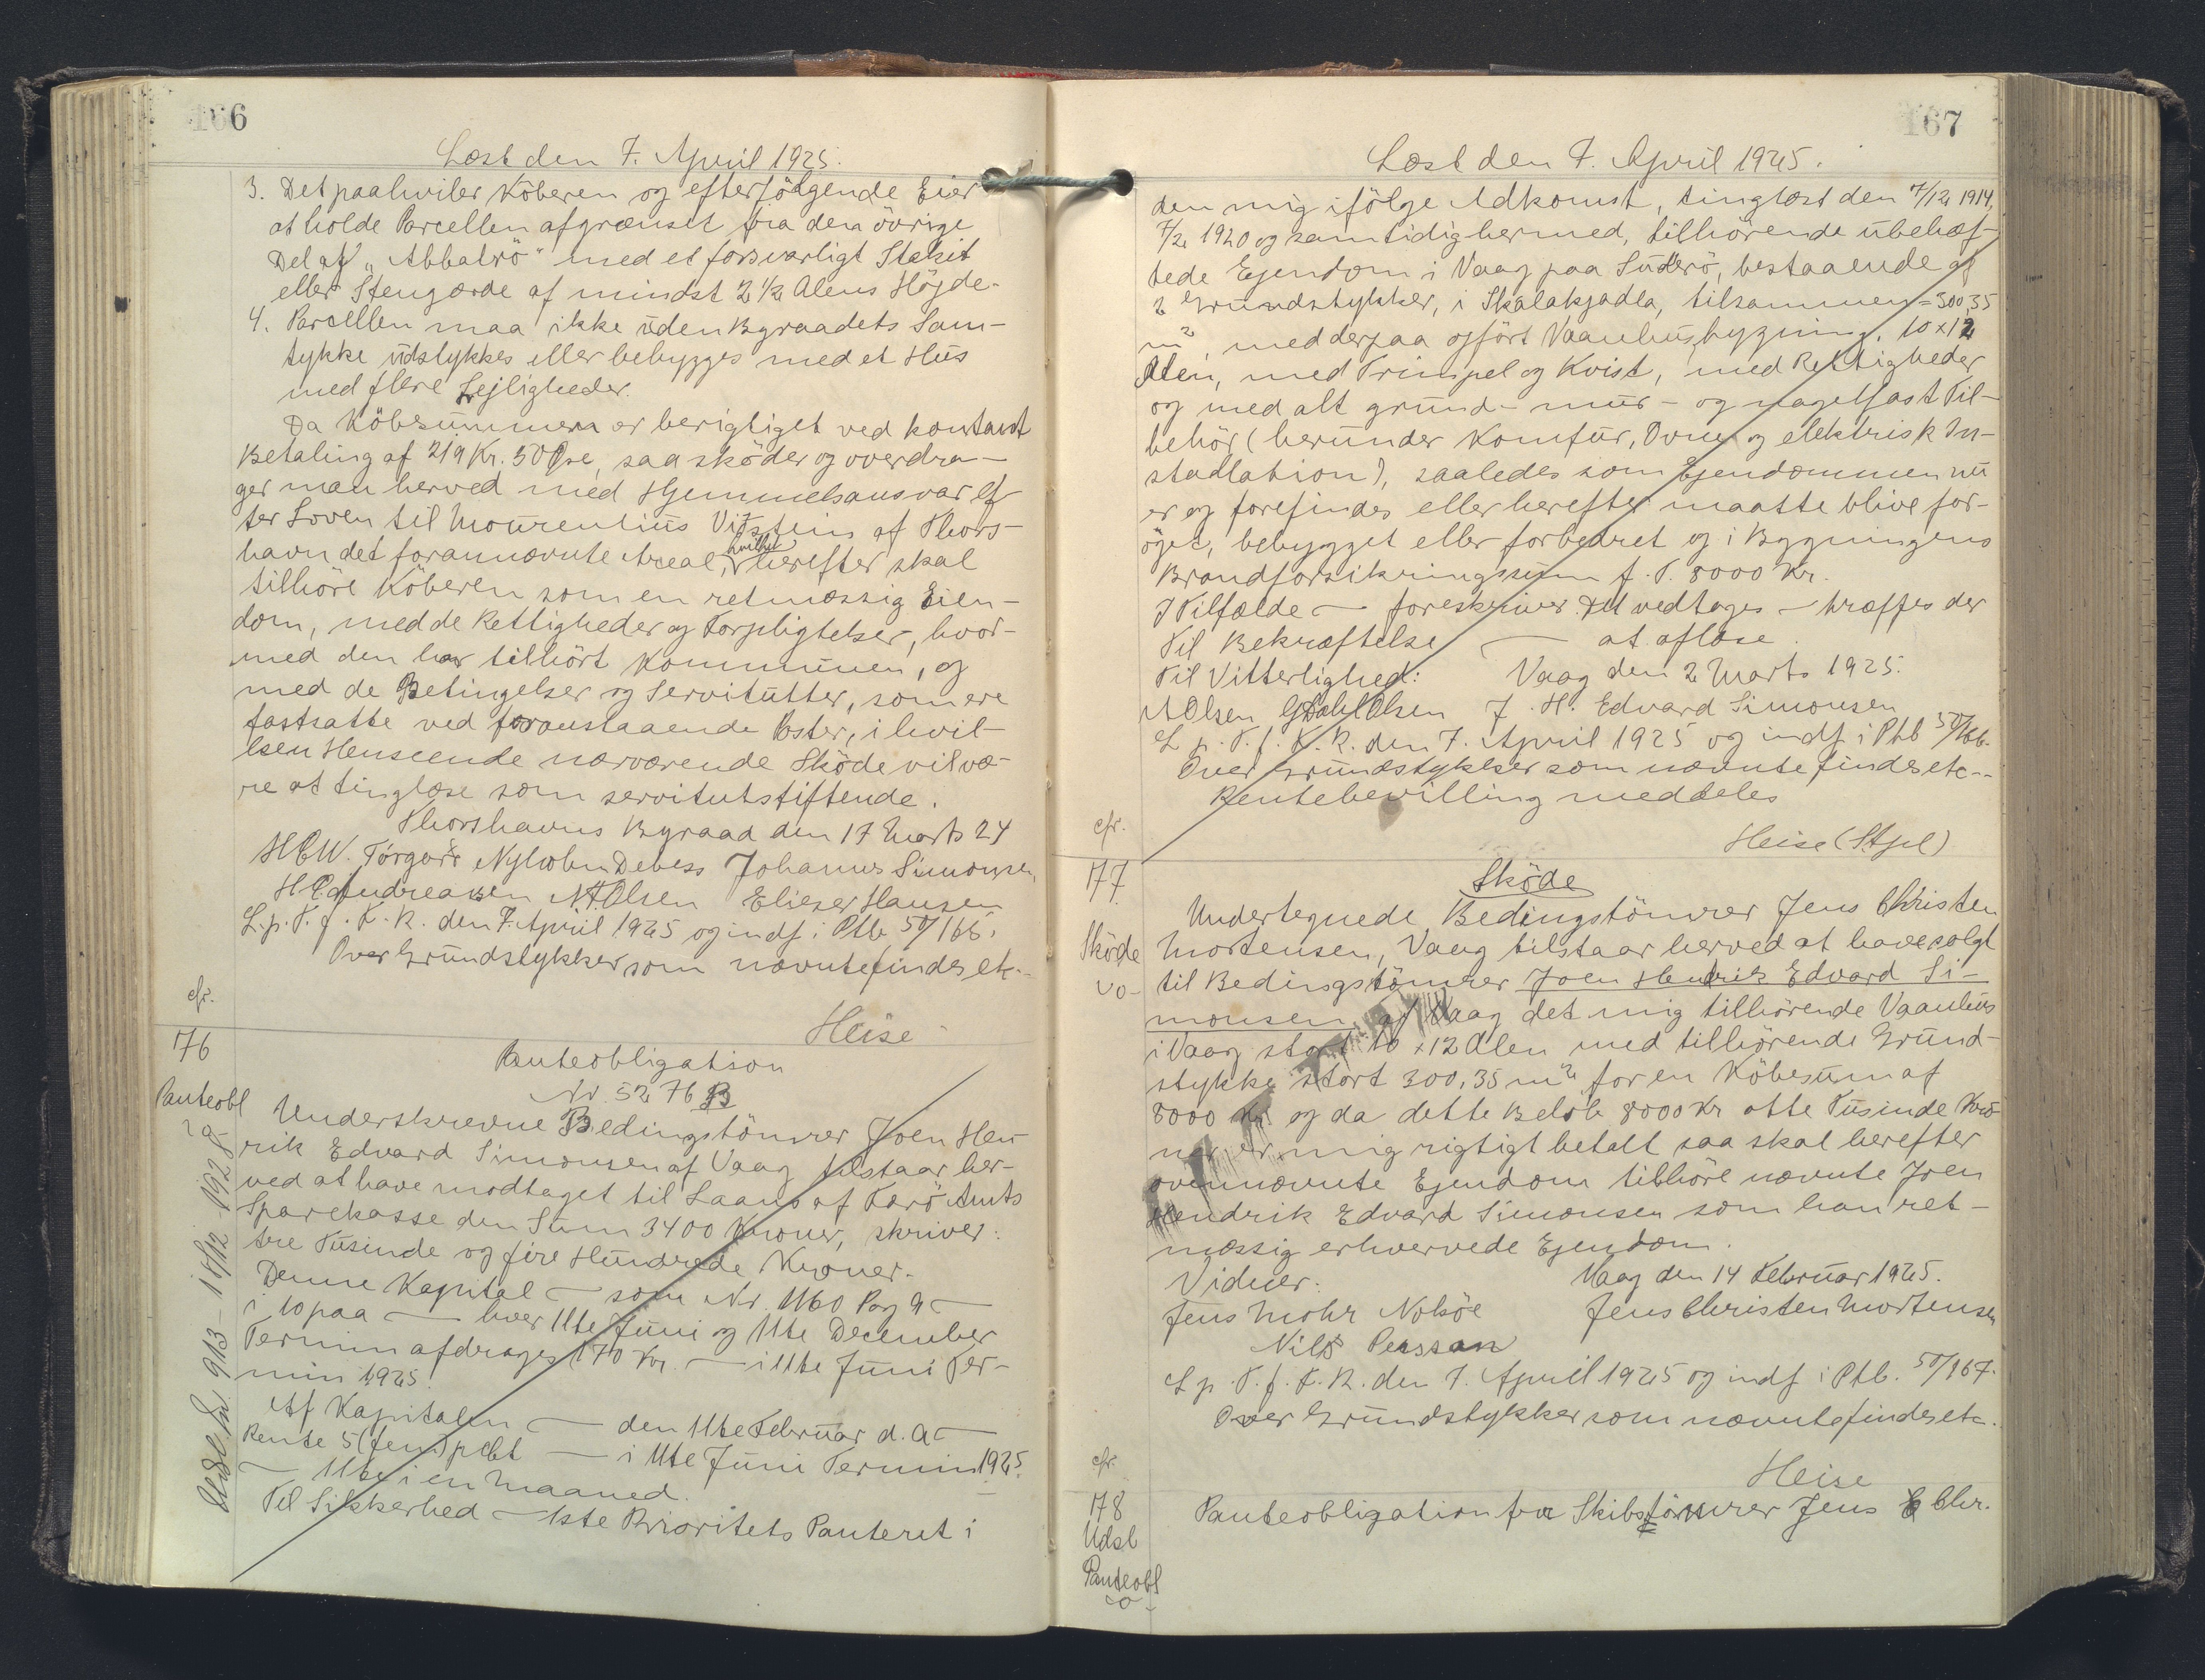 166
Læst den 7. April 1925.
3. Det paahviler Köberen og efterfölgende Eier
at holde Parcellen afgrænset fra den övrige
Del af „Abbatrö" med et forsvarligt Stakit
eller Stengærde af mindst 2 1/2 Alens Höjde.
4. Parcellen maa ikke uden Byraadets Sam-
tykke udstykkes eller bebygges med et Hus
med flere Lejligheder.
Da Köbesummen er berigtiget ved kontant
Betaling af 219 Kr. 50 Öre, saa sköder og overdra-
ger man herved med Hjemmelsansvar ef
ter Loven til Mourentius Viðstein af Thors-
havn det forannævnte Areal, hvilket herefter skal
tilhöre Köberen som en retmæssig Eien-
dom, med de Rettigheder og Forpligtelser, hvor-
med den har tilhört Kommunen, og
med de Betingelser og Servitutter, som ere
fastsatte ved foranstaaende Poster, i hvil-
ken Henseende nærværende Sköde vil væ-
re at tinglæse som servitutstiftende.
Thorshavns Byraad den 17 Marts 24
H C W. Tórgarð Nyholm Debess Johannes Simonsen
H P Andreasen N H Olsen Eliezer Hansen
L. p. T. f. F. R. den 7. April 1925 og indf. i Ptb 50/166.
Over Grundstykker som nævnte findes etc..
cfr.
Heise
176
Panteobligation
Nr. 5276 B
Panteobl
Underskrevne Bedingstömrer Joen Hen
rik Edvard Simonsen af Vaag tilstaar her-
ved at have modtaget til Laans af Færö Amts
Sparekasse den Sum 3400 Kroner, skriver:
tre Tusinde og fire Hundrede Kroner.
Denne Kapital — som Nr. 1160 Pag 9 —
i 10 paa — hver 11te Juni og 11te December
Termin afdrages 170 Kr. — i 11te Juni Ter-
min 1925.
Af Kapitalen — den 11te Februar d. A —
Rente 5 (fem) pCt — i 11te Juni Termin 1925.
— 11te i en Maaned.
Til Sikkerhed — 1ste Prioritets Panteret i
913 - 18/12 - 1928
167
Læst den 7. April 1925.
den mig ifölge Adkomst, tinglæst den 7/12 1914,
7/2 1920 og samtidig hermed, tilhörende ubehæf-
tede Ejendom i Vaag paa Suderö, bestaaende af
2 Grundstykker, i Skálakjadla, tilsammen = 300,35
m2, med derpaa opfört Vaanhusbygning, 10 x 12
Alen, med Trimpel og Kvist, med Rettigheder
og med alt grund- mur- og nagelfast Til-
behör (herunder Komfur, Ovne og elektrisk In-
stadlation), saaledes som Ejendommen nu
er og forefindes eller herefter maatte blive for-
öget, bebygget eller forbedret og i Bygningens
Brandforsikringssum f. T. 8000 Kr.
I Tilfælde — foreskriver. Det vedtages — træffes der
Til Bekræftelse — at aflæse.
Til Vitterlighed: Vaag den 2 Marts 1925.
A Olsen G Dahl Olsen J. H. Edvard Simonsen
L. p. T. f. F. R. den 7. April 1925 og indf i Ptb 50/166.
Over Grundstykker som nævnte findes etc..
Rentebevilling meddeles
cfr.
Heise (Stpl)
177.
Sköde
Undertegnede Bedingstömrer Jens Christen
Sköde
Mortensen, Vaag tilstaar herved at have solgt
til Bedingstömrer Joen Hendrik Edvard Si-
monsen af Vaag det mig tilhörende Vaanhus
i Vaag stort 10 x 12 Alen med tilhörende Grund-
stykke stort 300,35 m2 for en Köbesum af
8000 Kr og da dette Belöb 8000 Kr otte Tusinde Kro
ner er mig rigtigt betalt saa skal herefter
ovennævnte Ejendom tilhöre nævnte Joen
Hendrik Edvard Simonsen som han ret-
mæssig erhvervede Ejendom.
Vidner: Vaag den 14 Februar 1925.
Jens Mohr Nolsöe Jens Christen Mortensen
Nils Persson
L. p. T. f. F. R. den 7. April 1925 og indf i Ptb. 50/167.
Over Grundstykker som nævnte findes etc.
cfr.
Heise
178
Udsl
Panteobl
Panteobligation fra Skibstömrer Jens Chr.